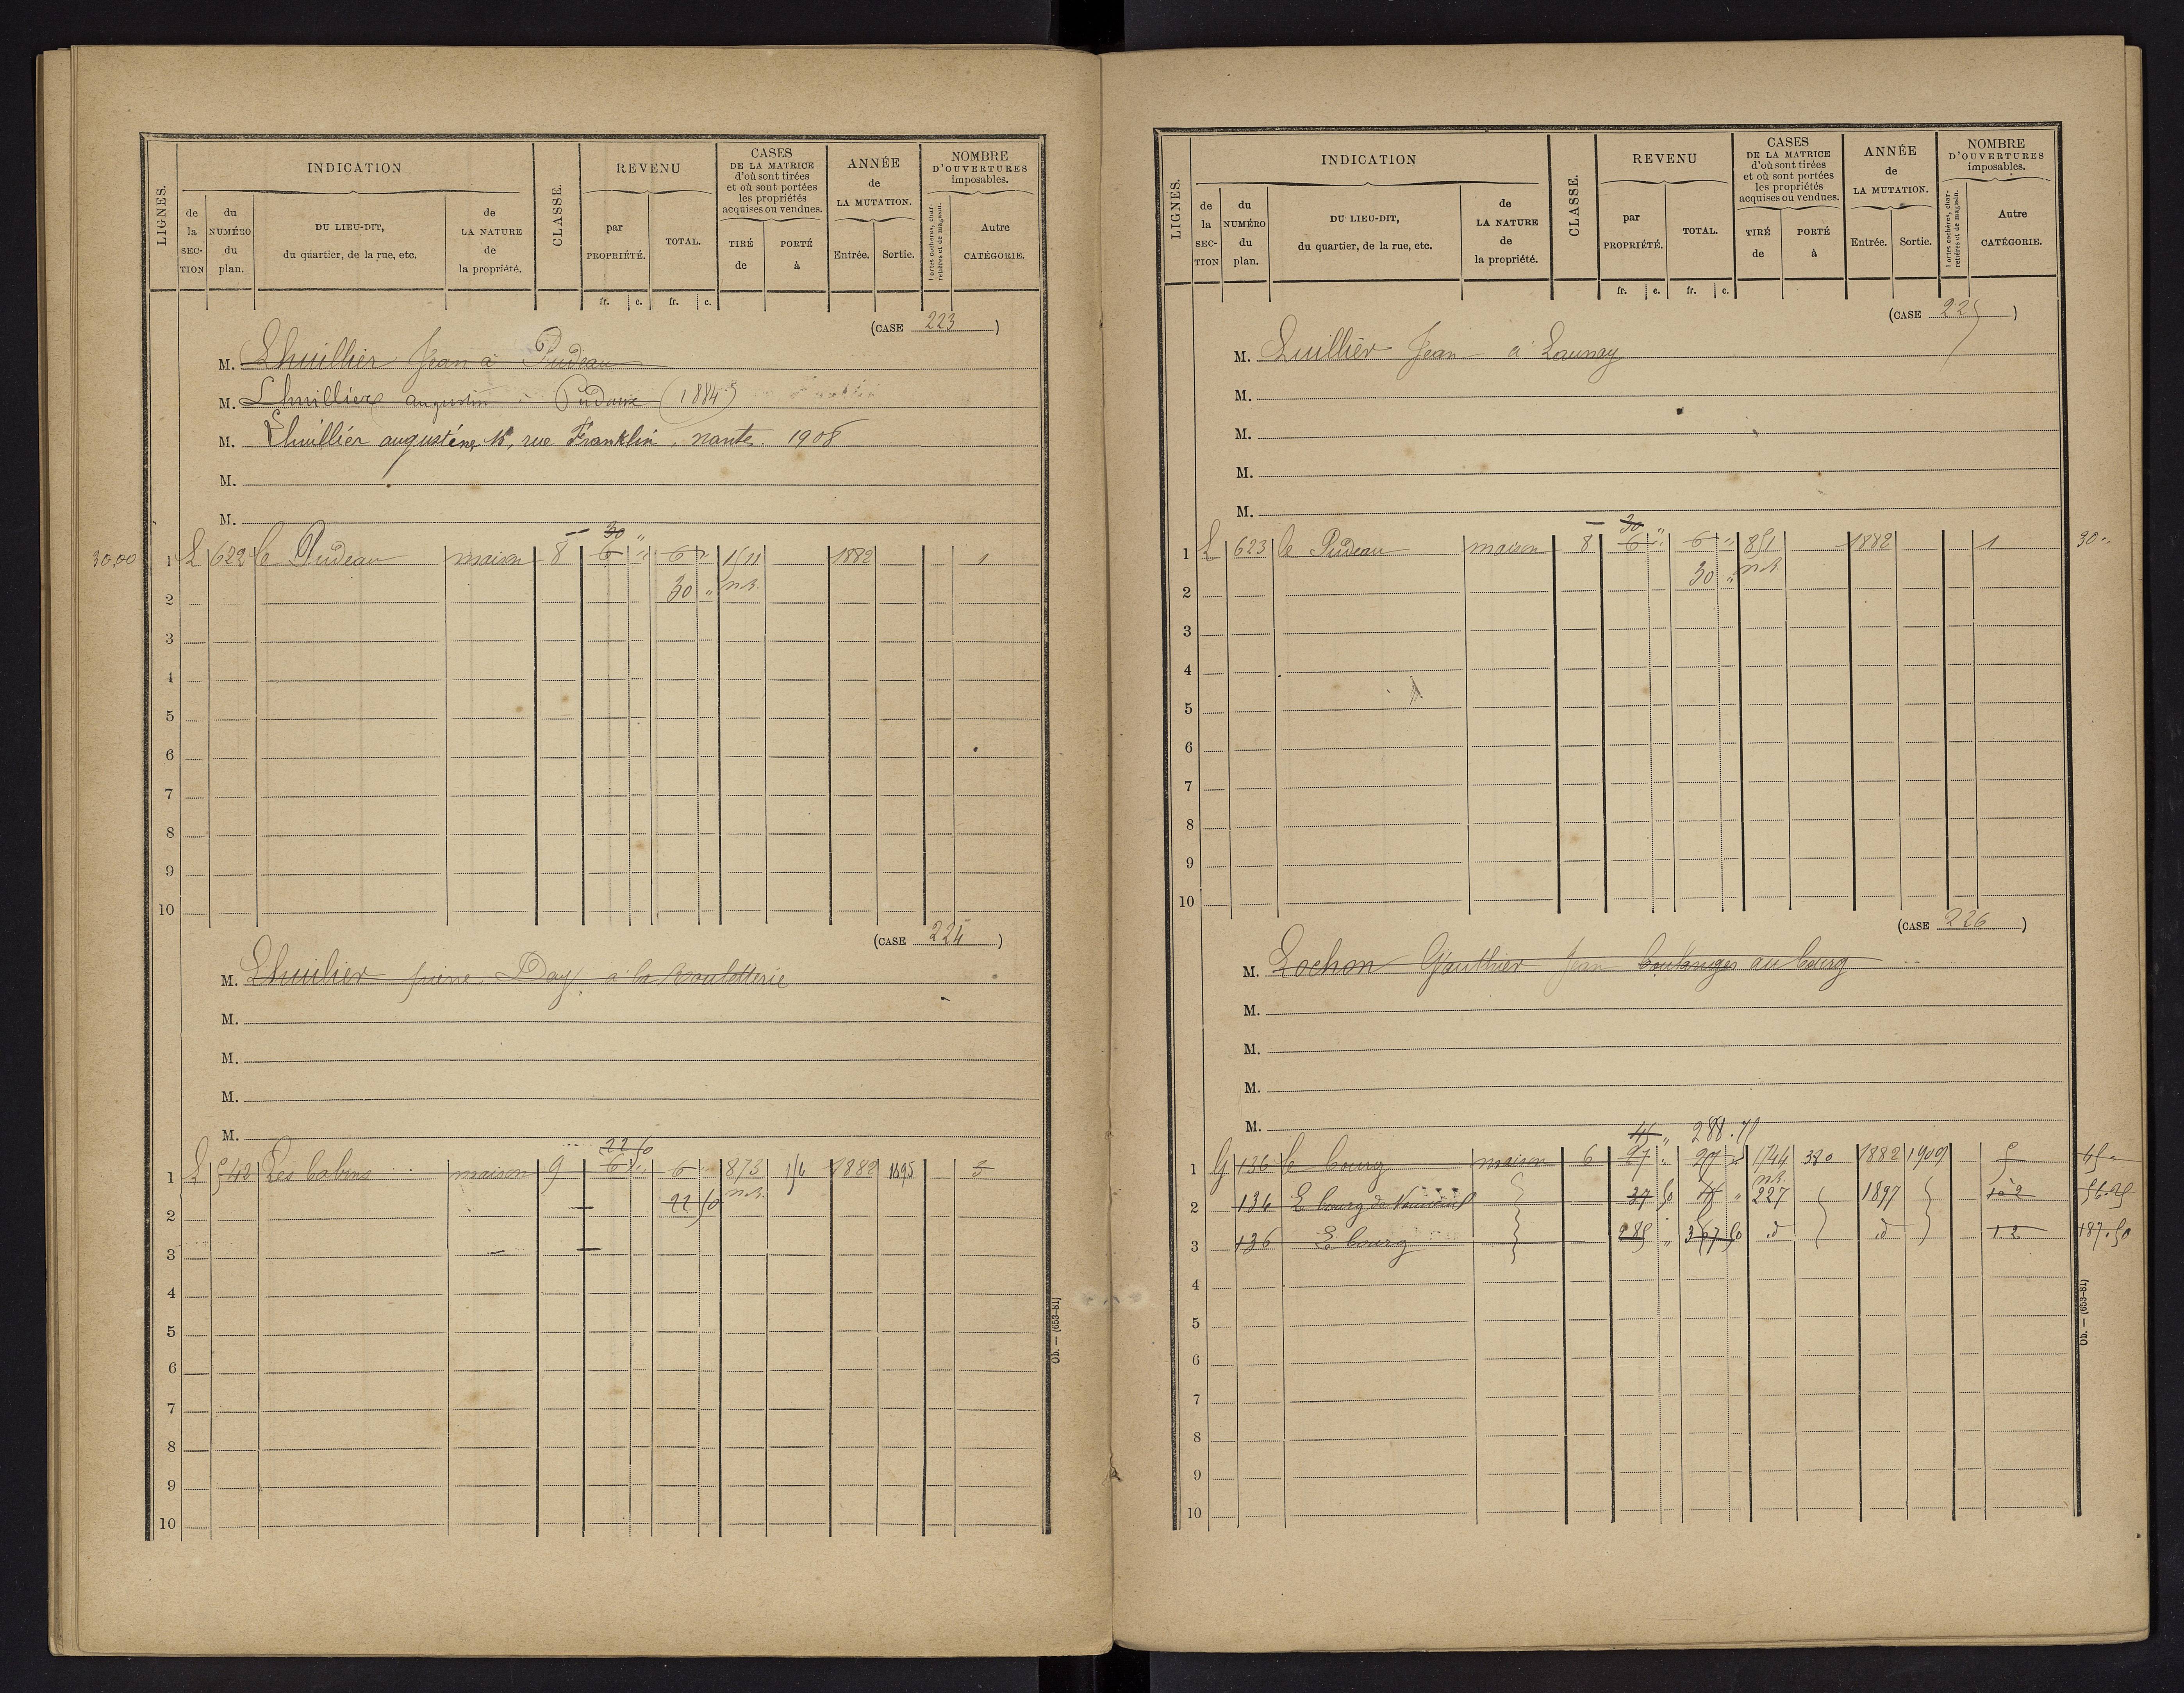 LIGNES.
INDICATION
de la SECTION
du NUMÉRO du plan.
DU LIEU-DIT, du quartier, de la rue, etc.
de LA NATURE de la propriété.
CLASSE.
REVENU
par PROPRIÉTÉ.
TOTAL.
fr. c. fr. c.
CASES DE LA MATRICE d'où sont tirées et où sont portées les propriétés acquises ou vendues.
TIRÉ de
PORTÉ à
ANNÉE de LA MUTATION.
Entrée. Sortie.
NOMBRE D'OUVERTURES imposables.
Portes cochères, charretières et de magasin.
Autre CATÉGORIE.
(CASE 223)
M. Lhuillier Jean à Pudeau
M. Lhuillier augustin à (1884)
M. Lhuillier augustine, rue Franklin, nantes. 1908
M.
M.
30
30,00 1 L 622 le Pudeau maison 8 6 " 6 " 1511 1882 1
2 30 " n.R.
3
4
5
6
7
8
9
10
(CASE 224)
M. Lhuilier pierre Day à la
M.
M.
M.
M.
22 50
1 L 542 Les babins maison 9 6 " 6 873 1882 1895 3
2 22 50 n.R.
3
4
5
6
7
8
9
10
Ob. — (653-81)
LIGNES.
INDICATION
de la SECTION
du NUMÉRO du plan.
DU LIEU-DIT, du quartier, de la rue, etc.
de LA NATURE de la propriété.
CLASSE.
REVENU
par PROPRIÉTÉ.
TOTAL.
fr. c. fr. c.
CASES DE LA MATRICE d'où sont tirées et où sont portées les propriétés acquises ou vendues.
TIRÉ de
PORTÉ à
ANNÉE de LA MUTATION.
Entrée. Sortie.
NOMBRE D'OUVERTURES imposables.
Portes cochères, charretières et de magasin.
Autre CATÉGORIE.
(CASE 225)
M. Luillier Jean à Launay
M.
M.
M.
M.
30
1 L 623 le Pudeau maison 8 6 " 6 " 851 1882 1 30 "
2 30 " n.R.
3
4
5
6
7
8
9
10
(CASE 226)
M. Lochon Gauthier Jean boulanger au bourg
M.
M.
M.
M.
45 " 288.75
1 G 136 le bourg maison 6 27 " 27 " 1744 320 1882 1909 5 45 "
2 136 Le bourg de 37 50 45 " n.R. 227 1897 1 à 2 56.25
3 136 Le bourg 285 " 367 50 d d 12 187.50
4
5
6
7
8
9
10
Ob. — (653-81)